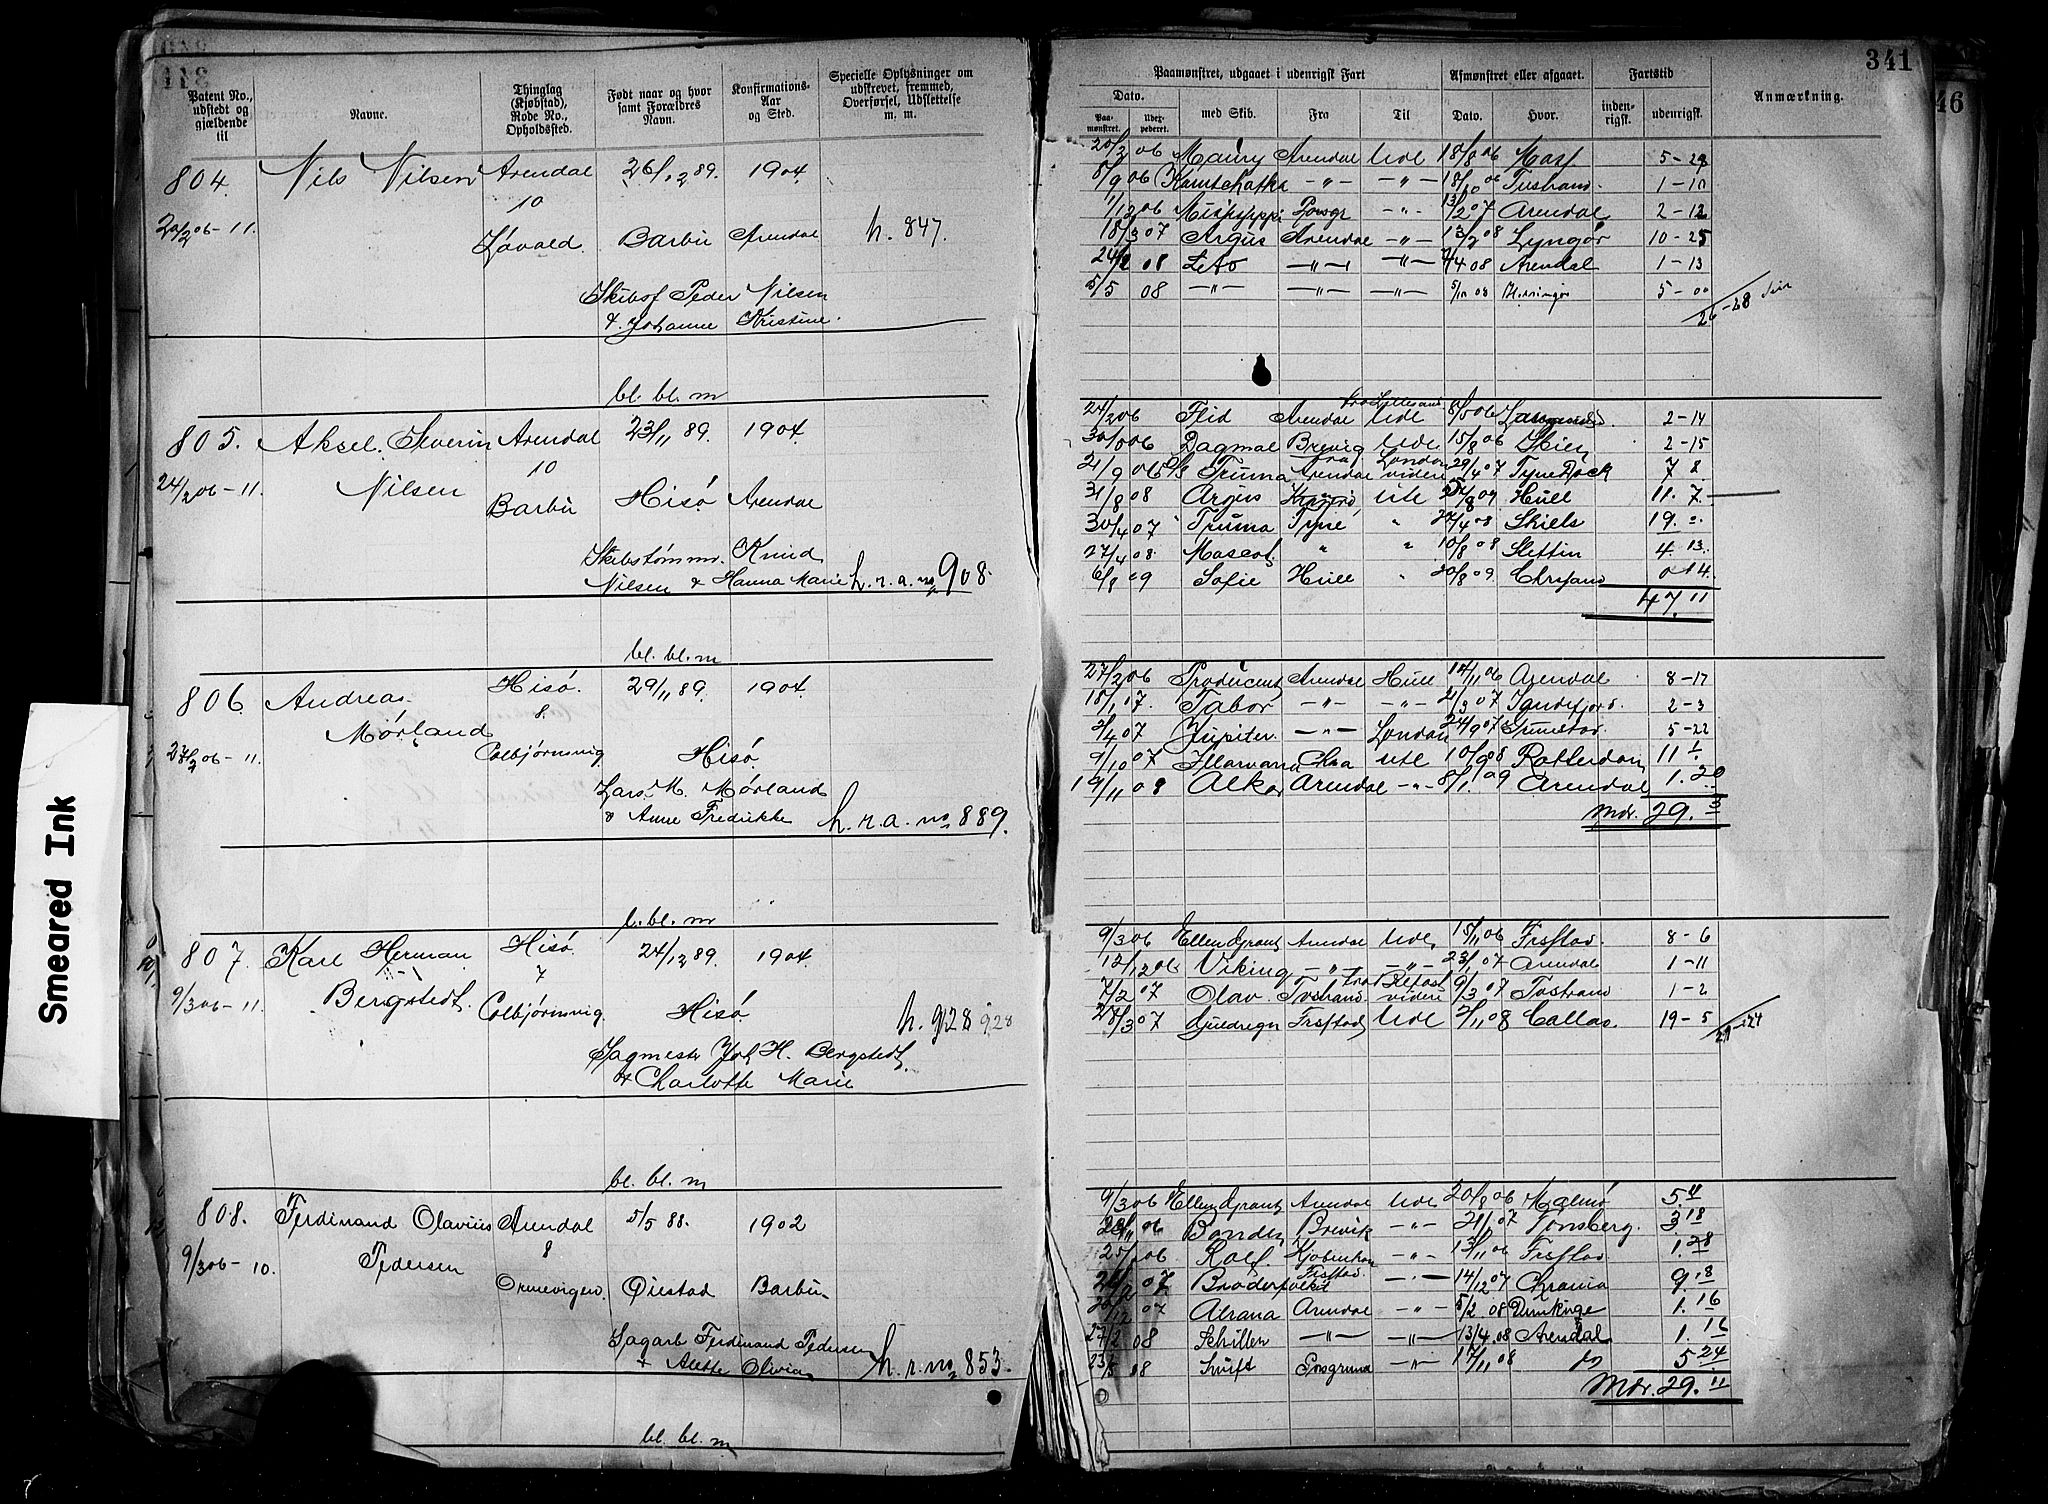 341
46
Smeared Ink
Patent No., udstedt og gjældende til
Navne.
Thinglag (Kjøbstad), Rode No., Opholdssted.
Født naar og hvor samt Forældres Navn.
Konfirmations-Aar og Sted.
Specielle Oplysninger om udskrevet, fremmed, Overførsel, Udslettelse m. m.
Paamønstret, udgaaet i udenrigsk Fart
Afmønstret eller afgaaet.
Fartstid
Anmærkning.
Dato.
med Skib.
Fra
Til
Dato.
Hvor.
inden-rigsk.
udenrigsk.
Paa-mønstret.
Udex-pederet.
804. Nils Nilsen Arendal 26/12 89. 1904.
10
20/2 06-11. Løvold. Barbu Arendal h. 847.
Skibsf Peder Nilsen
& Johanne Kristine.
20/2 06 Maury Arendal Ude 18/8 06 Moss 5-29
8/9 06 Kamtschatka -"- -"- 18/10 06 1-10
11/12 06 Porsgr -"- 13/2 07 Arendal 2-12
18/3 07 Argus Arendal -"- 13/2 08 Lyngør 10-25
24/2 08 Leto -"- -"- 7/4 08 Arendal 1-13
5/5 08 -"- -"- -"- 5/10 08 5-00
26-28
bl. bl. m
805. Aksel Severin Arendal 23/11 89. 1904.
10
24/2 06-11. Nilsen Barbu Hisø Arendal
Skibstømmr. Knud
Nilsen & Hanna Marie h. r. a. no 908.
24/2 06 Flid Arendal Ude 2-14
Dagmar Brevig Ude 15/8 06 Skien 2-15
21/9 06 Truma Arendal videre 29/4 07 Tyne Dock 7 2
31/8 08 Argus ute Hull 11. 7
30/4 07 Truma Tyne " 27/4 08 Skiels 19. "
27/4 08. Mascot " " 10/8 08 Stettin 4. 13.
6/8 09 Sofie Hull " 20/8 09. Chrsand 0 14.
47. 11
bl. bl. m
806. Andreas Hisø. 29/11 89. 1904.
8.
Mørland
27/2 06-11. Colbjørnsvig Hisø.
Lars M. Mørland
& Anne Fredrikke h. r. a. no 889.
27/2 06 Producent Arendal Hull 14/11 06 Arendal 8-17
18/1 07. Tabor -"- -"- 21/3 07 2-3
2/4 07 Jupiter. -"- London 24/9 07 5-22
9/10 07 Havana Chra ute 10/9 08 Rotterdam 11 1
19/11 08 Alka Arendal -"- 8/1 09 Arendal 1. 20
Mdr. 29. 3
bl. bl. m
807. Karl Herman Hisø 24/12 89. 1904.
7
9/3 06-11. Bergstedt. Colbjørnsvig. Hisø h. 928 928
Sagmestr Joh H. Bergstedt
& Charlotte Marie
9/3 06 Ellen Grant Arendal Ude 15/11 06 Frsstad. 8-6
12/12 06 Viking -"- -"- 23/1 07 Arendal 1-11
7/2 07 Olav. Tvstrand videre 9/3 07 Tvstrand 1-2
28/3 07 Frsstad Ude 2/11 08 Callao. 19-5
bl. bl. m
808. Ferdinand Olavius Arendal 5/5 88. 1902
8
9/3 06-10. Pedersen Øiestad Barbu
Sagarb Ferdinand Pedersen
& Olivia h. r. no 853.
9/3 06 Ellen Grant Arendal Ude 20/8 06 Malmø 5 11
Bonden Brevik -"- 21/1 07 Tønsberg. 3 18
Rolf. Kjøbenhavn -"- 13/11 06 Frsstad 1. 28
Broderfolket Frsstad. -"- 14/12 07 Chrania 9. 18
20/12 07 Atrana Arendal -"- 5/2 08 1. 16
27/2 08 Schiller -"- -"- 13/4 08 Arendal 1. 16
23/5 08 Swift Porsgrund -"- 17/11 08 do 5 24
Mdr. 29. 11
bl. bl. m